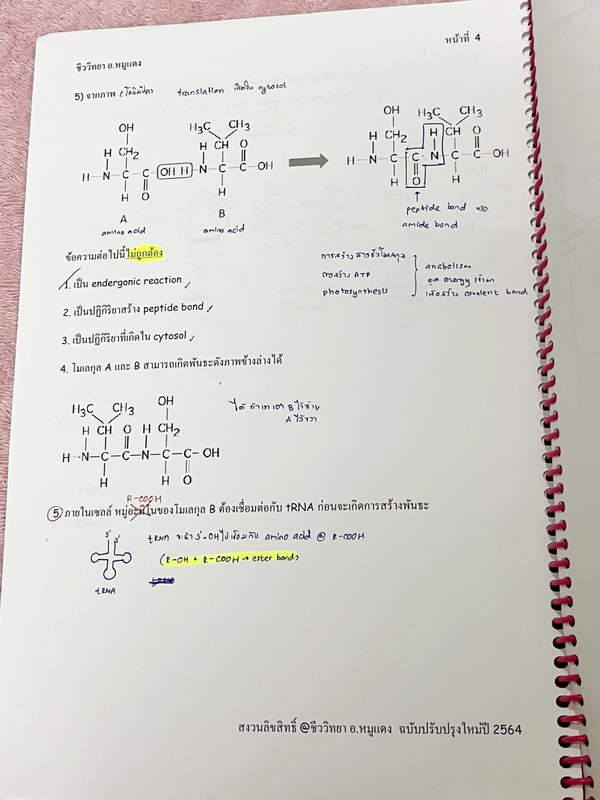 หน้าที่ 4
ชีววิทยา อ.หมูแดง
5) จากภาพ translation เกิดใน cytosol
OH
H CH₂
H-N-C-C
H O
A
amino acid
OH H
H₃C CH₃
H CH O
N-C-C-OH
H
B
amino acid
OH
H CH₂
H-N-C-C
H O
H₃C CH₃
H CH O
N-C-C-OH
H
peptide bond
amide bond
ข้อความต่อไปนี้ไม่ถูกต้อง
1. เป็น endergonic reaction
2. เป็นปฏิกิริยาสร้าง peptide bond
3. เป็นปฏิกิริยาที่เกิดใน cytosol
4. โมเลกุล A และ B สามารถเกิดพันธะดังภาพข้างล่างได้
การสร้าง ATP
photosynthesis
anabolism
ดูด energy เข้ามา
เพื่อสร้าง covalent bond
H₃C CH₃ OH
H CH O H CH₂
H-N-C-C-N-C-C-OH
H H O
B ไว้ซ้าย
A ไว้ขวา
R-COOH
5 ภายในเซลล์ หมู่อะมิโนของโมเลกุล B ต้องเชื่อมต่อกับ tRNA ก่อนจะเกิดการสร้างพันธะ
5' 3'
tRNA
tRNA จะนำ 3'-OH ไปเชื่อมกับ amino acid @ R-COOH
(R-OH + R-COOH → ester bond)
สงวนลิขสิทธิ์ @ชีววิทยา อ.หมูแดง ฉบับปรับปรุงใหม่ปี 2564